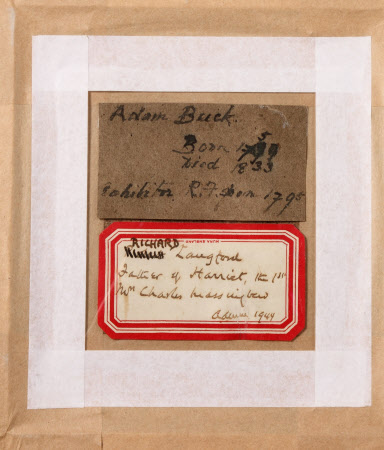 Adam Buck.
Born 1759
Died 1833
Exhibitor R.A. from 1795
RICHARD
Langford
Father of Harriet, the 1st
Mrs Charles Massingberd
1944